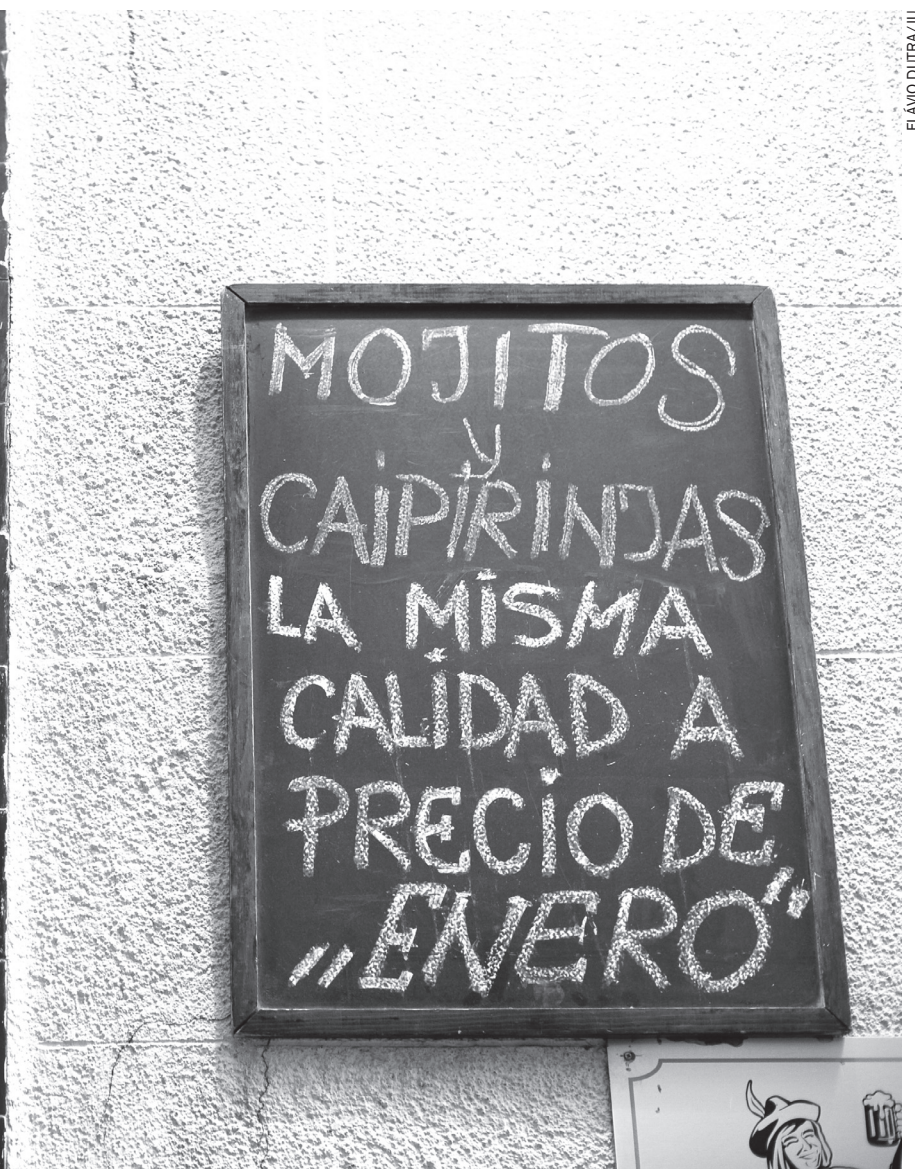 FLÁVIO DUTRA/JU
MOJITOS
y
CAIPIRINJAS
LA MISMA
CALIDAD A
PRECIO DE
„ENERO“